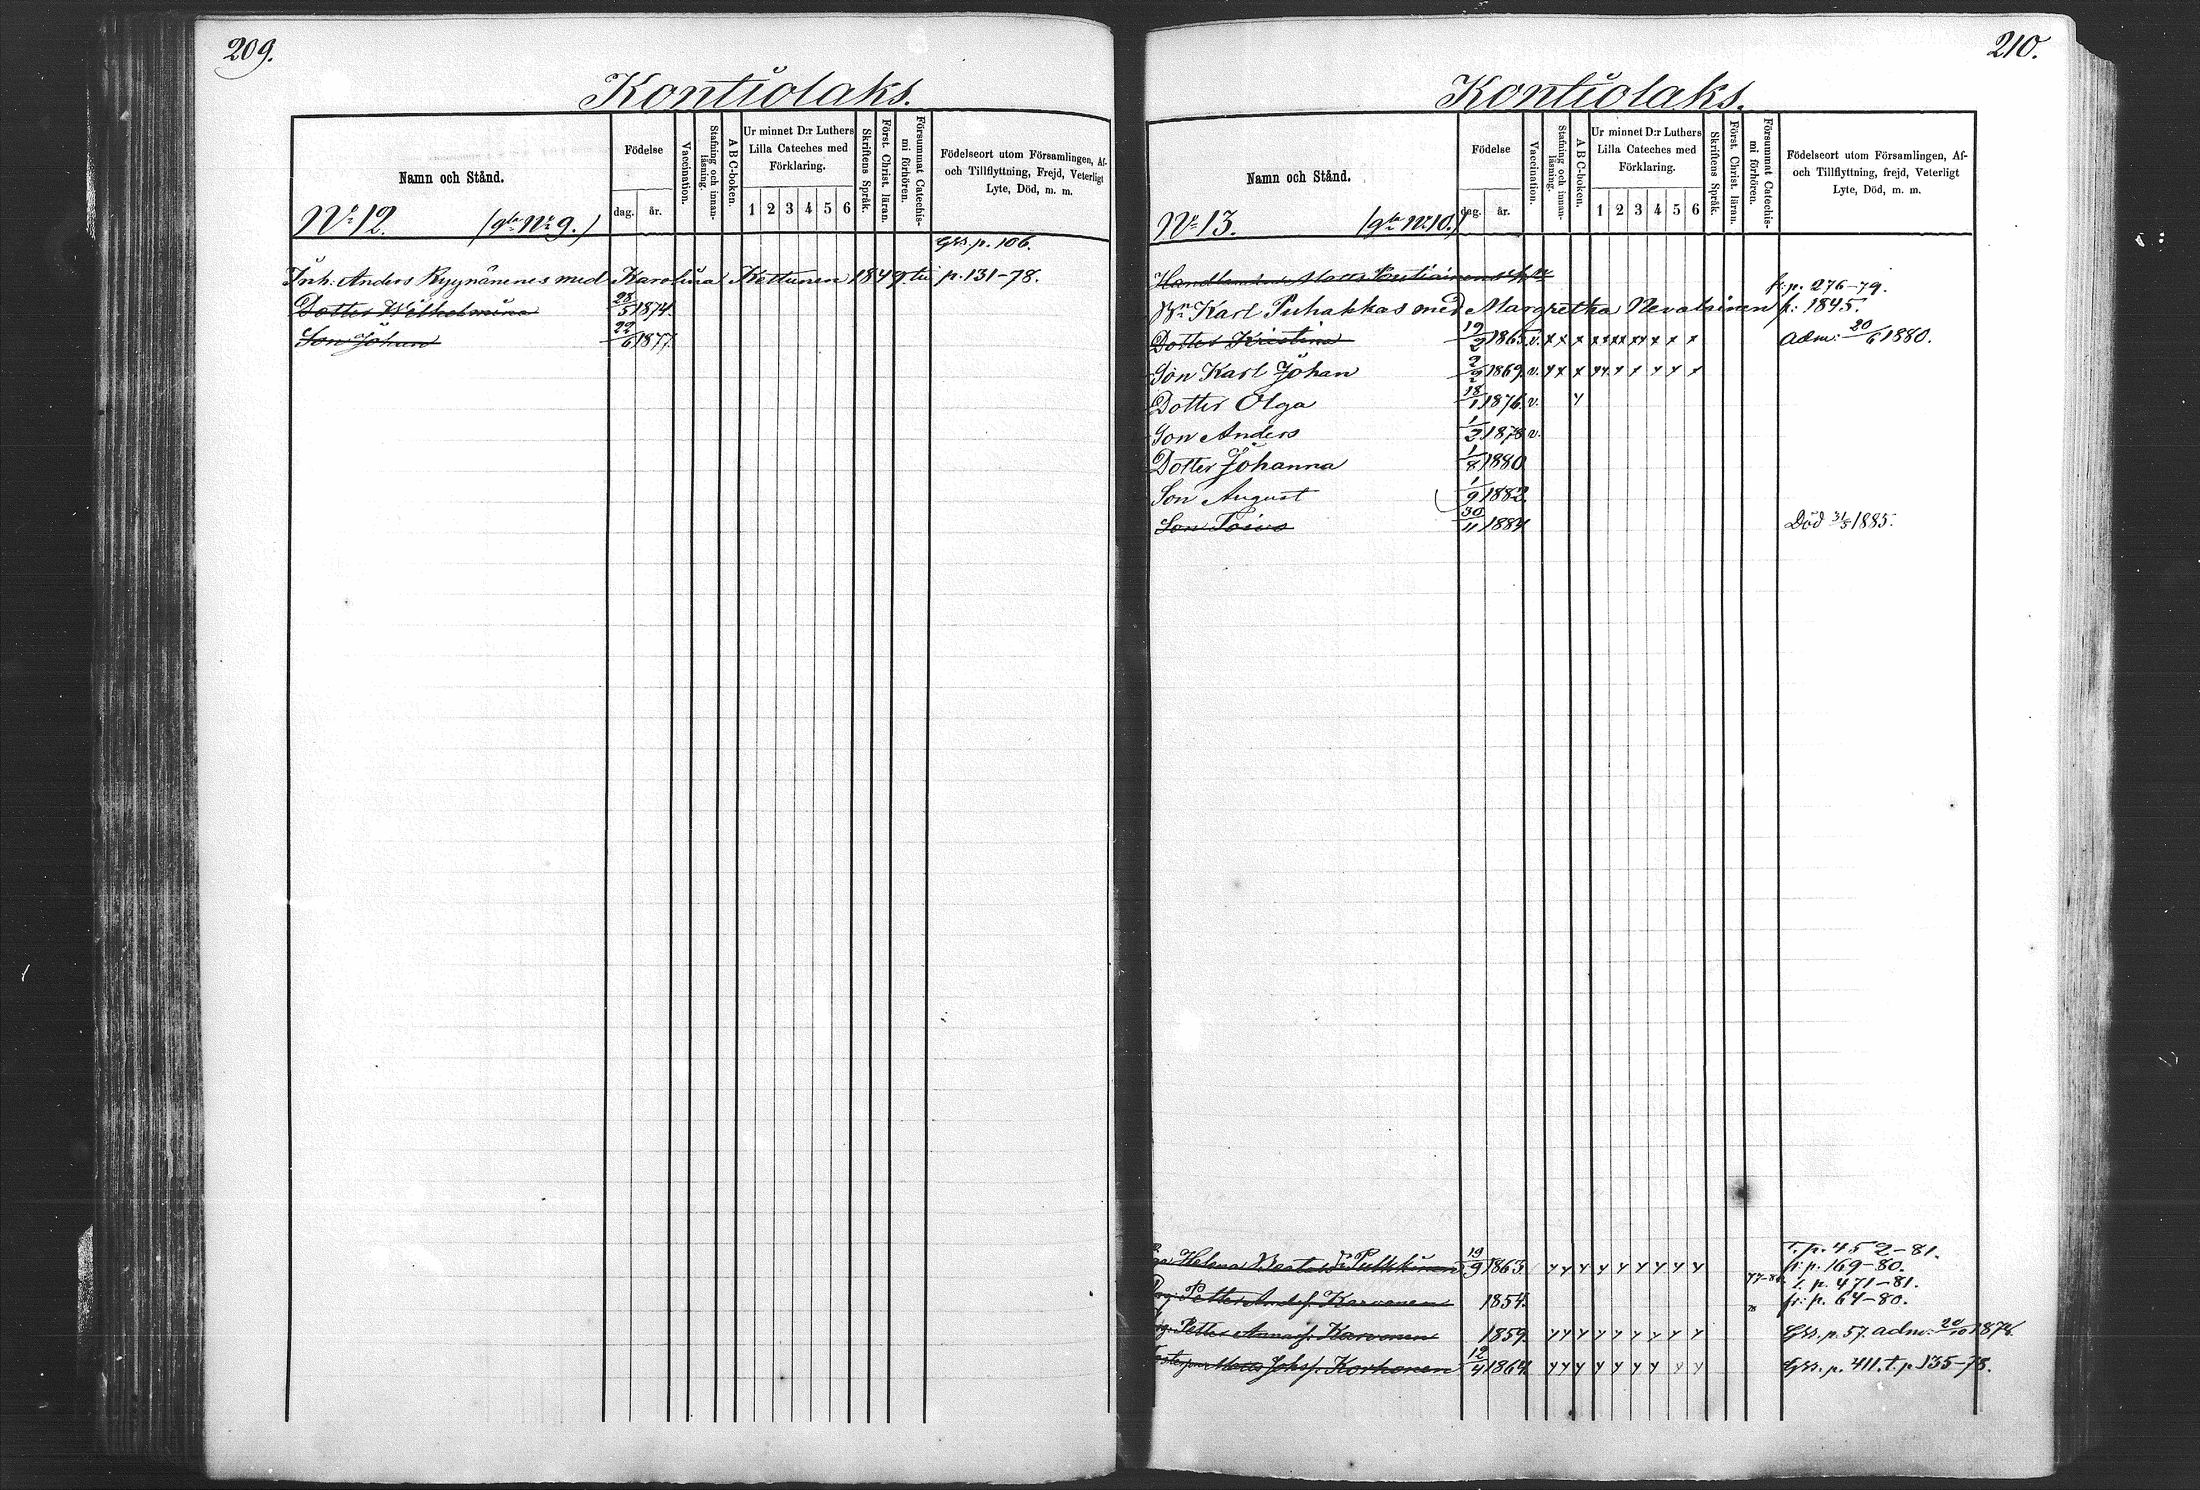 209.
Kontiolaks.
Namn och Stånd.
Födelse
dag. år.
Vaccination.
Stafning och innanläsning.
A B C-boken.
Ur minnet D:r Luthers
Lilla Cateches med
Förklaring.
1 2 3 4 5 6
Skriftens Språk.
Först. Christ. läran.
Försummat Catechismi förhören.
Födelseort utom Församlingen, Af-
och Tillflyttning, Frejd, Veterligt
Lyte, Död, m. m.
No 12. (gla No 9.)
Grs. p. 106.
Inh: Anders Ryynänenes med Karolina Kettunen 1849 p. 131-78.
Dotter Wilhelmina 28/5 1874.
Son Johan 22/6 1877.
210.
Kontiolaks.
Namn och Stånd.
Födelse
dag. år.
Vaccination.
Stafning och innanläsning.
A B C-boken.
Ur minnet D:r Luthers
Lilla Cateches med
Förklaring.
1 2 3 4 5 6
Skriftens Språk.
Först. Christ. läran.
Försummat Catechismi förhören.
Födelseort utom Församlingen, Af-
och Tillflyttning, frejd, Veterligt
Lyte, Död, m. m.
No 13. (gla No 10.)
Matts
p. 276-79.
Karl Puhakkas med Margretha Nevalainen f: 1845.
Dotter Kristina 19/2 1865. v. x x x x x x x x x x adm: 20/6 1880.
Son Karl Johan 2/2 1869. v. x x x x x x x x x x
Dotter Olga 18/1 1876. v. y
Son Anders 1/3 1878 v.
Dotter Johanna 1/8 1880
Son August 1/9 1882
Son Toivo 30/11 1884 Död 31/5 1885.
t. p. 452-81.
Helena Pulkkinen 19/9 1863. y y y y y y y y y fr: p. 169-80.
t. p. 471-81.
Petter Karvonen 1854. fr: p. 64-80.
Petter Karvonen 1859. y y y y y y y y y Grs. p. 57. adm: 20/10 1874.
Matts Johsf. Korhonen 12/4 1864. y y y y y y y y y Grs. p. 411. t. p. 135-78.